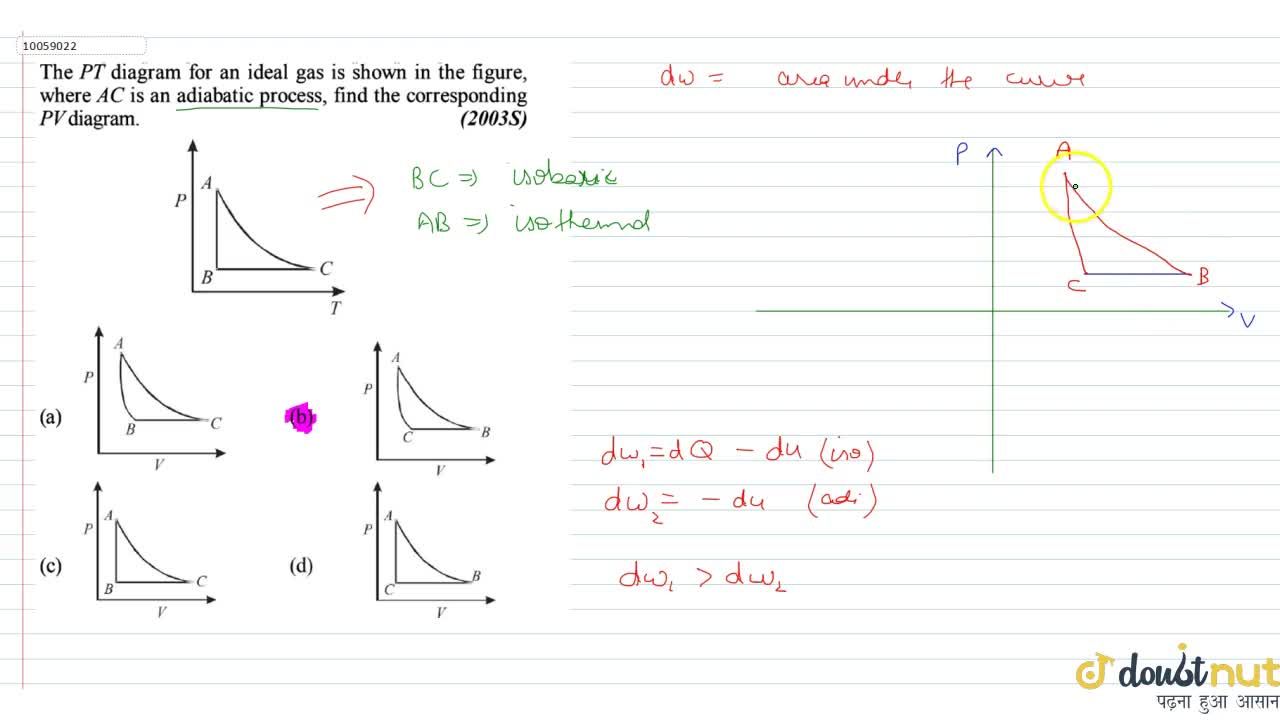 10059022
The PT diagram for an ideal gas is shown in the figure,
where AC is an adiabatic process, find the corresponding
PV diagram. (2003S)
P
A
B
C
T
BC ⇒ isobaric
AB ⇒ isothermal
(a)
P
A
B
C
V
(b)
P
A
C
B
V
(c)
P
A
B
C
V
(d)
P
A
C
B
V
dw = area under the curve
P
A
C
B
V
dw₁ = dQ - du (iso)
dw₂ = - du (adi)
dw₁ > dw₂
doubtnut
पढ़ना हुआ आसान